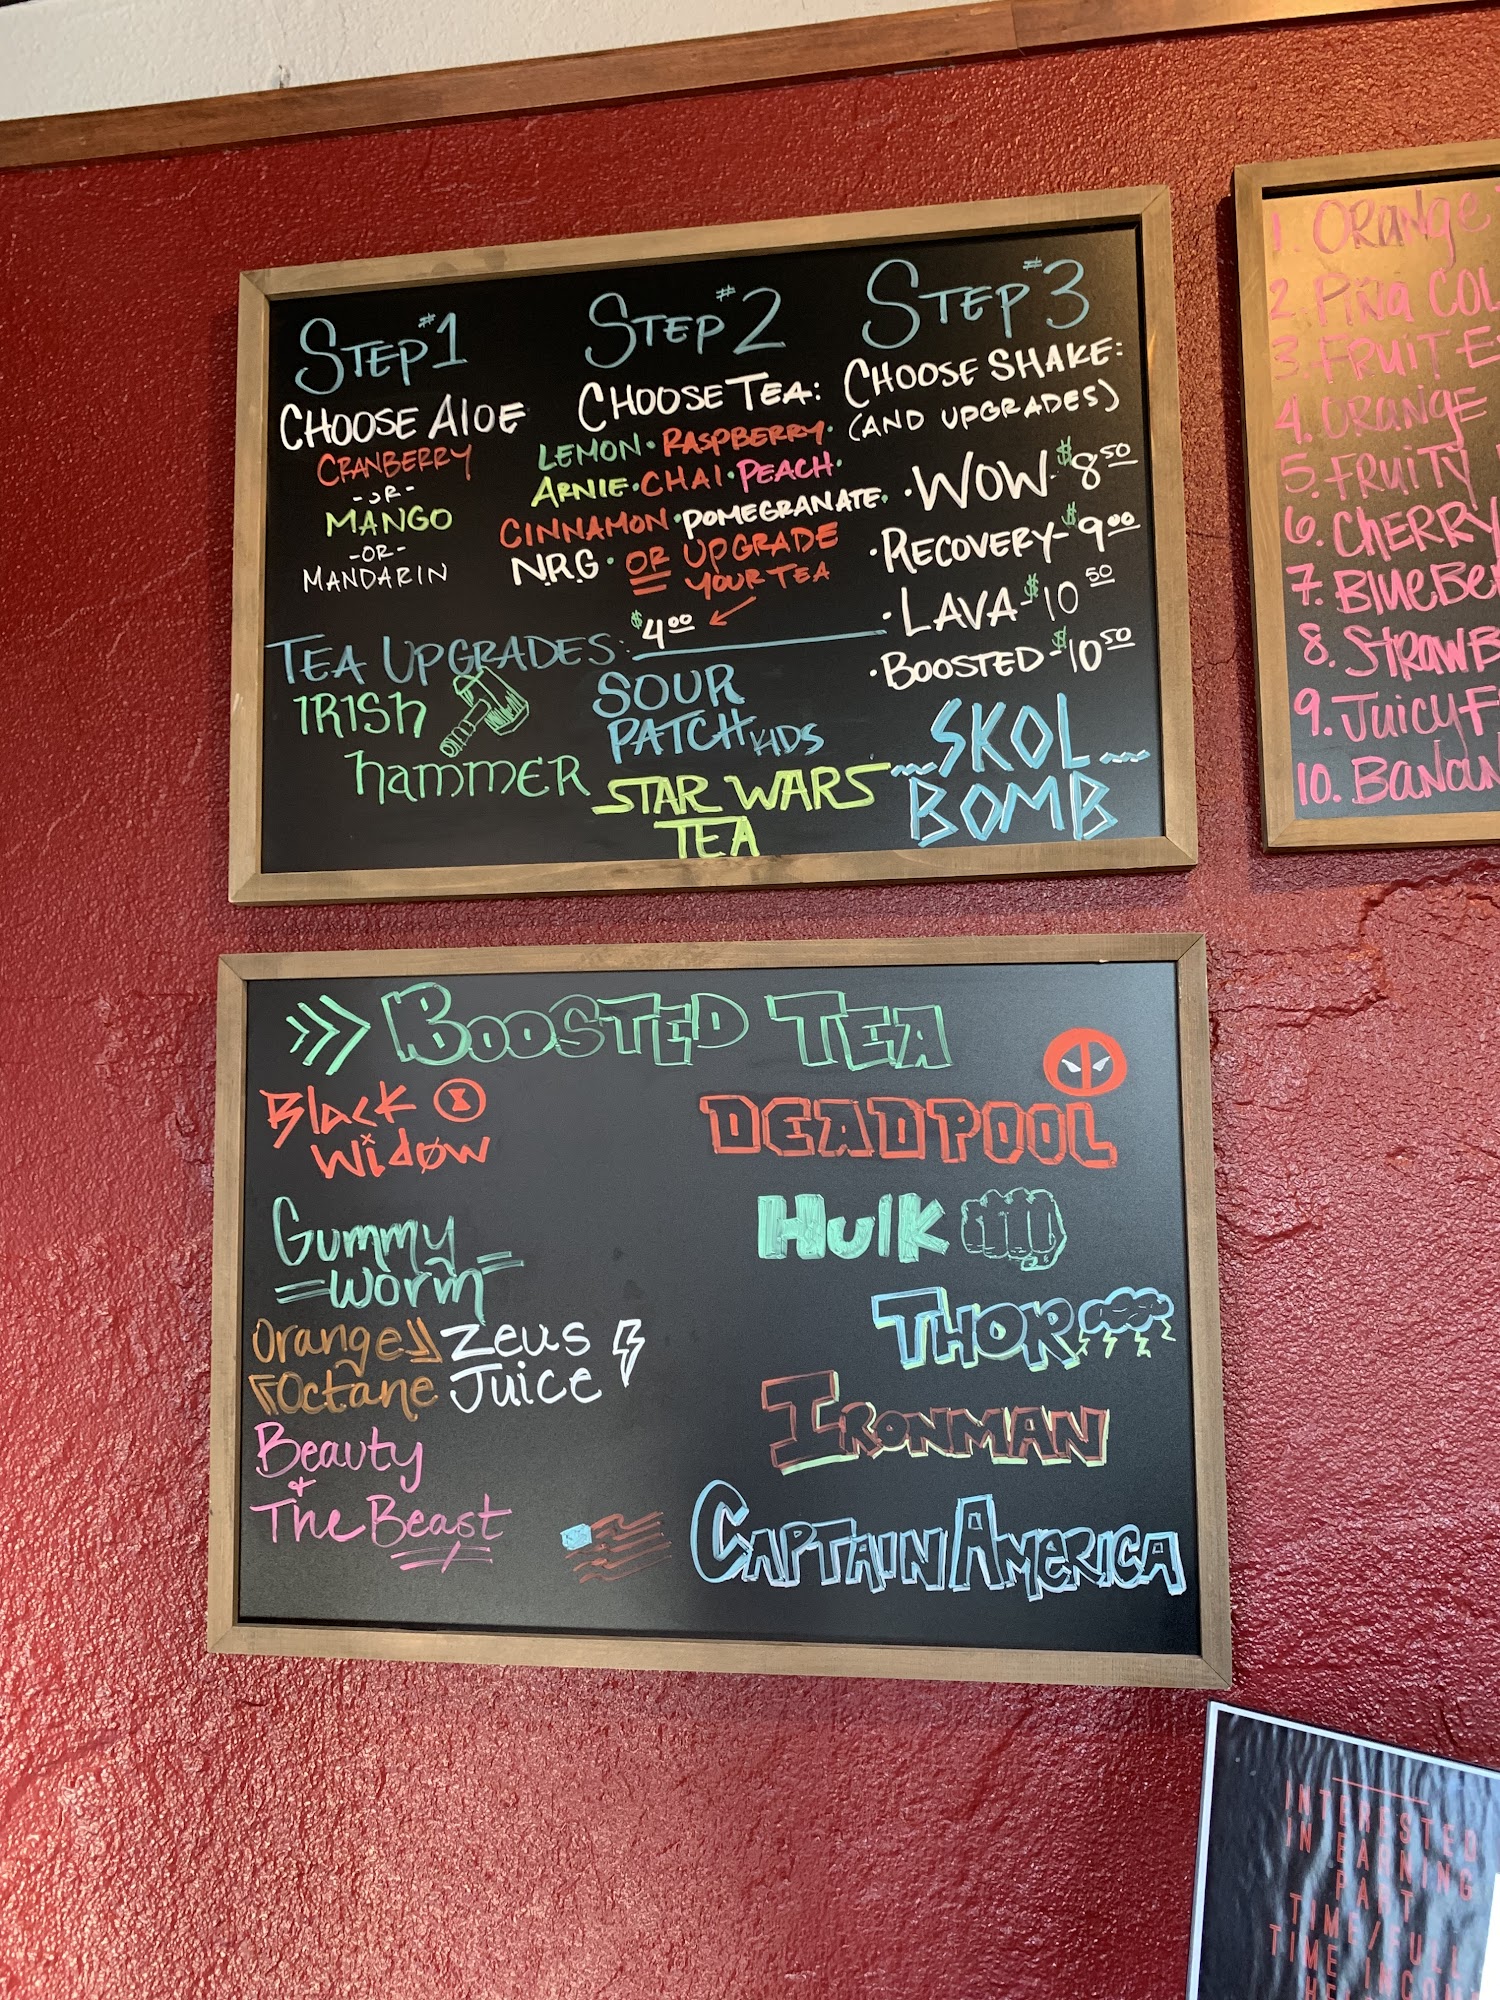 STEP #1
CHOOSE ALOE
CRANBERRY
-OR-
MANGO
-OR-
MANDARIN
STEP #2
CHOOSE TEA:
LEMON • RASPBERRY •
ARNIE • CHAI • PEACH •
CINNAMON • POMEGRANATE •
N.R.G • OR UPGRADE
YOUR TEA
TEA UPGRADES: $4.00
IRISH
HAMMER
SOUR
PATCH KIDS
STAR WARS
TEA
STEP #3
CHOOSE SHAKE:
(AND UPGRADES)
• WOW - $8.50
• RECOVERY - $9.00
• LAVA - $10.50
• BOOSTED - $10.50
SKOL
BOMB
1. ORANGE
2. PIÑA COL
3. FRUIT E
4. ORANGE
5. FRUITY
6. CHERRY
7. BLUEBE
8. STRAWB
9. JUICY F
10. BANAN
BOOSTED TEA
Black
Widow
Gummy
Worm
Orange
Octane
Zeus
Juice
Beauty
+
The Beast
DEADPOOL
HULK
THOR
IRONMAN
CAPTAIN AMERICA
INTERESTED
IN EARNING
PART
TIME/FULL
TIME INCOM